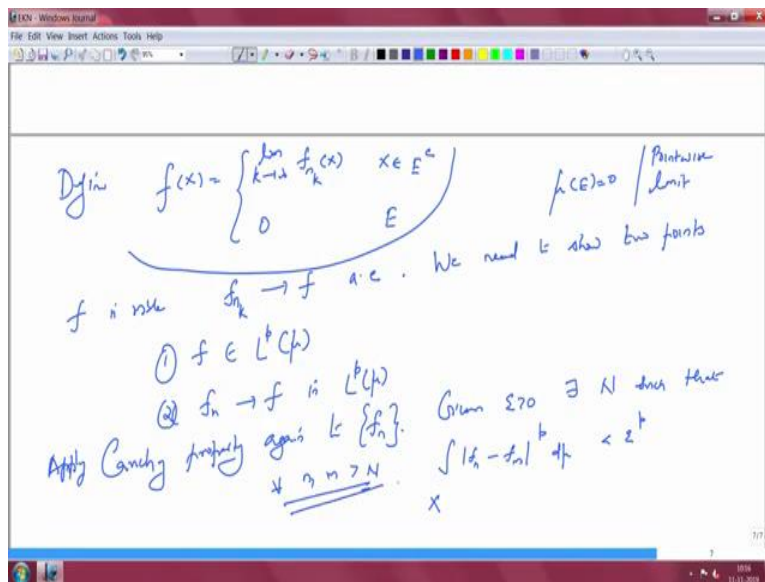 EKN - Windows Journal
File Edit View Insert Actions Tools Help
Define f(x) = { lim k→∞ f_{n_k}(x) x ∈ E^c
0 E
μ(E)=0 / Pointwise limit
f is mble f_{n_k} → f a.e. We need to show two points
① f ∈ L^p(μ)
② f_n → f in L^p(μ)
Apply Cauchy property again to {f_n}. Given ε>0 ∃ N such that
∀ n, m > N. ∫_X |f_n - f_m|^p dμ < ε^p
7/7
7
10:56
11-11-2019